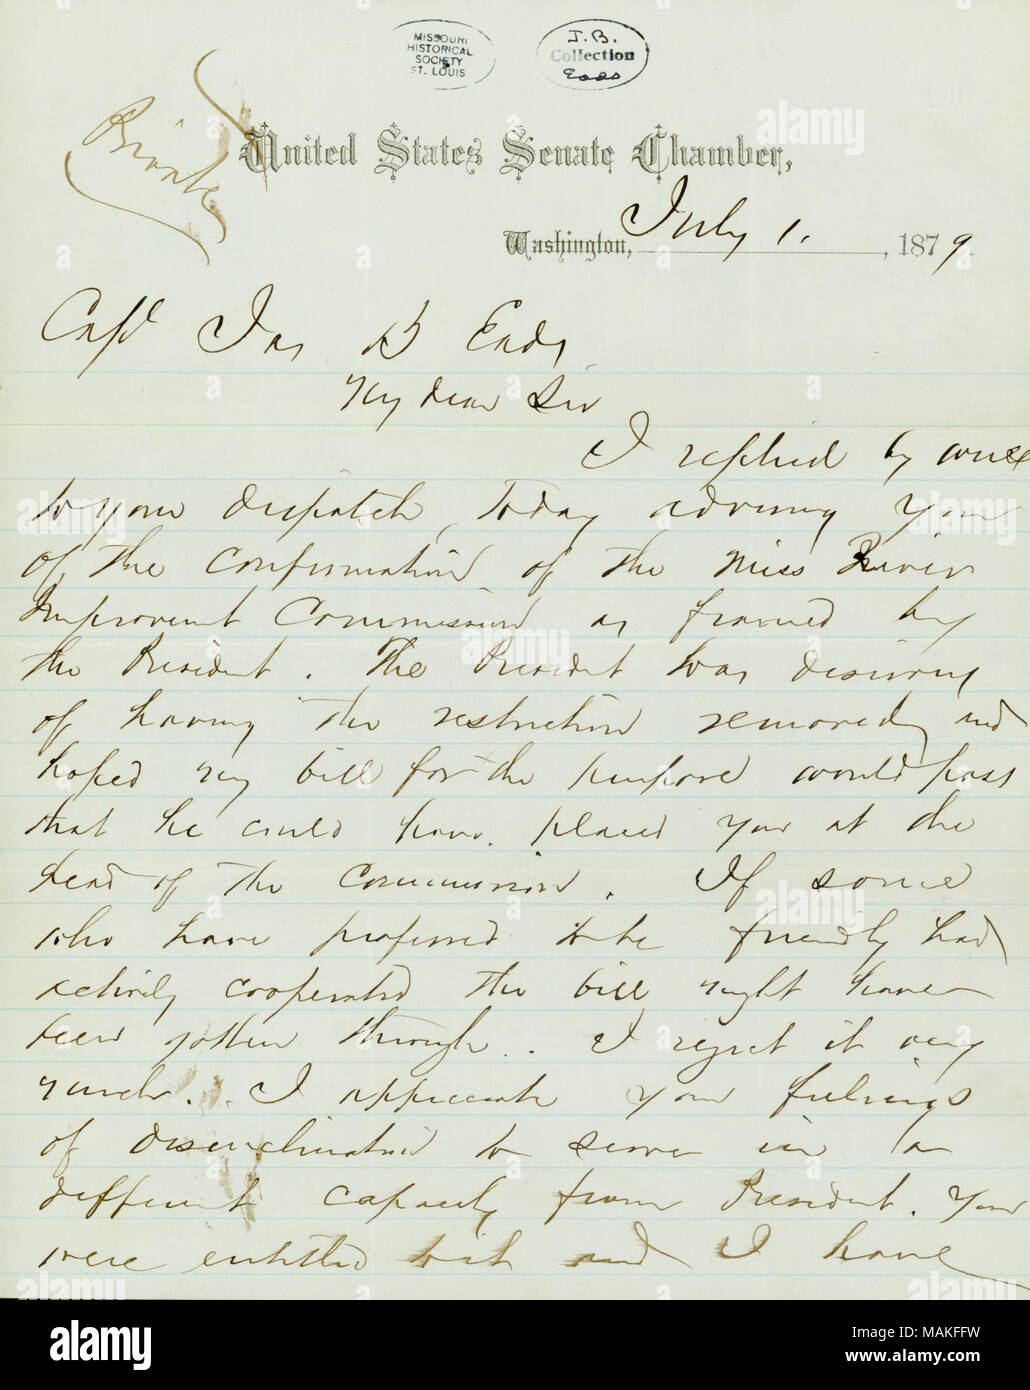 MISSOURI
HISTORICAL
SOCIETY
ST. LOUIS
J. B.
Collection
Eads
Private
United States Senate Chamber,
Washington, July 1. , 1879.
Capt Jas B Eads
My dear Sir
I replied by wire
to your dispatch, today advising you
of the confirmation of the Miss River
Improvmt Commission as framed by
the President. The President was desirous
of having the restriction removed, and
hoped my bill for the purpose would pass
that he could have placed you at the
head of the Commission. If some
who have professed to be friendly had
actively cooperated the bill might have
been gotten through. I regret it very
much. I appreciate your feelings
of disinclination to serve in a
different capacity from President. You
were entitled to it and I have
alamy
Image ID: MAKFFW
www.alamy.com